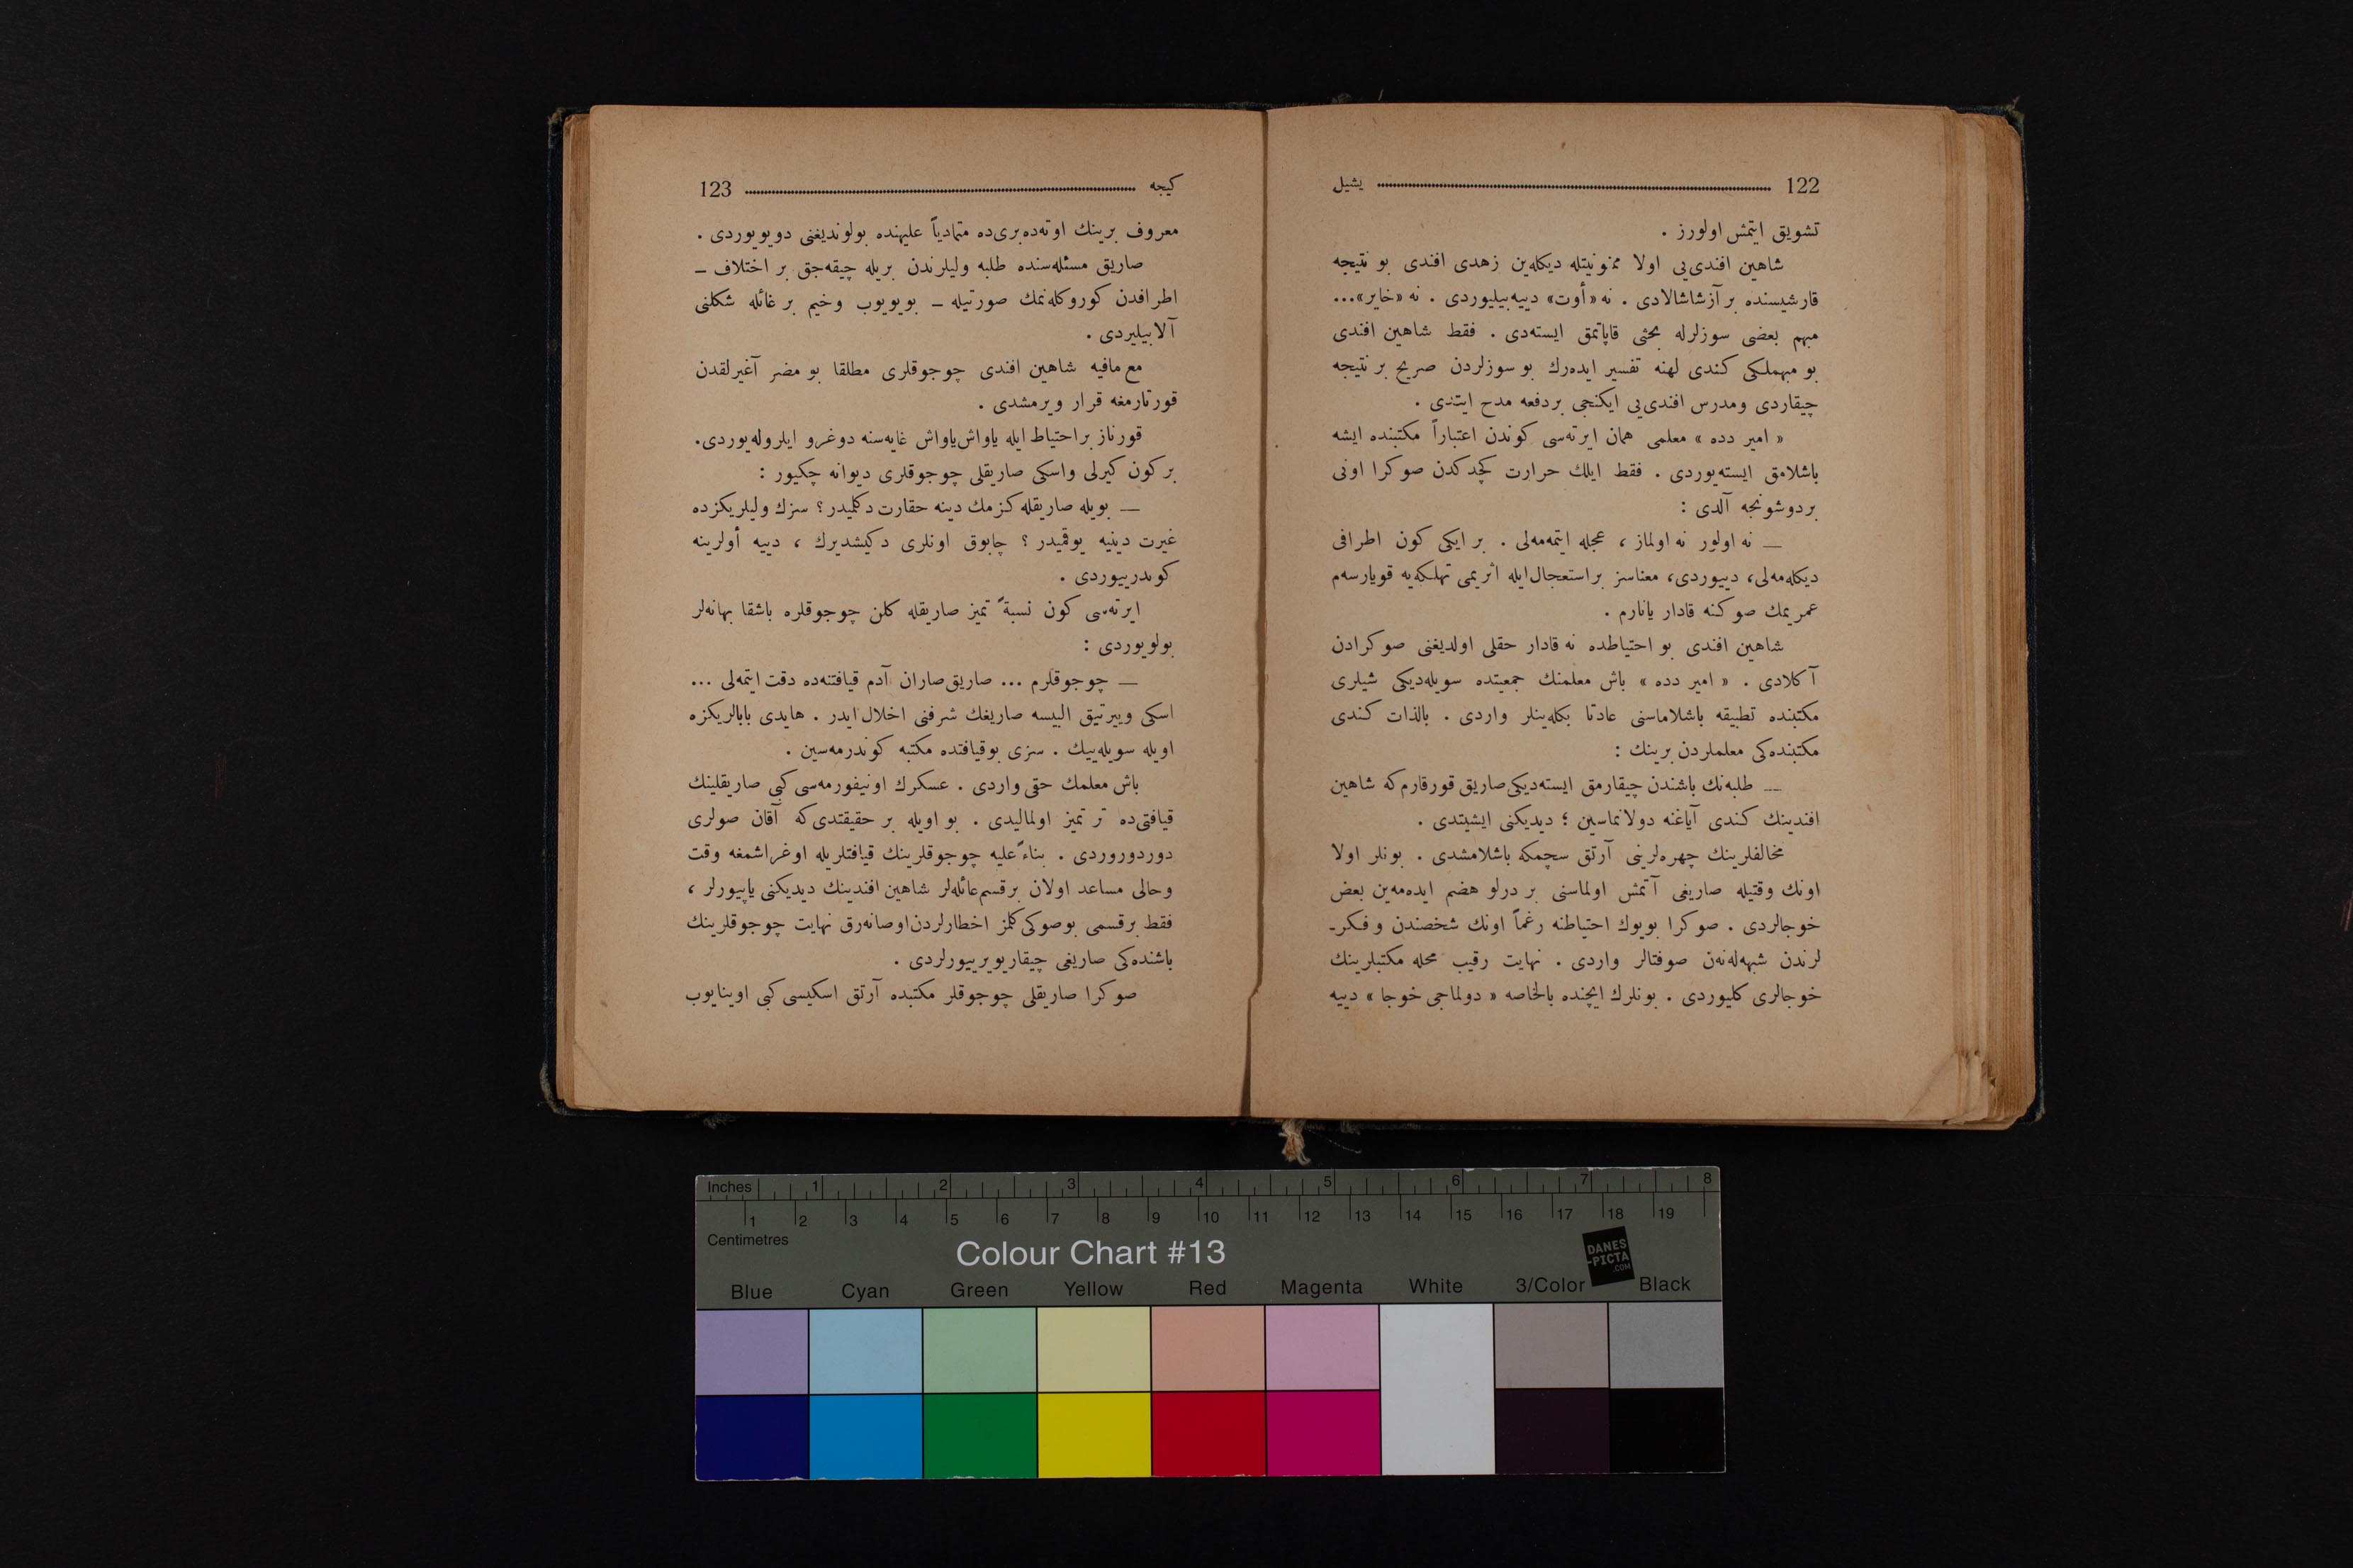 122 یشیل
تشویق ایتمش اولورز .
شاهین افندی‌یی اولا ممنونیتله دیكله‌ین زهدی افندی بو نتیجه
قارشیسنده بر آز شاشالادی . نه «أوت» دییه‌بیلیوردی . نه «خایر»...
مبهم بعضی سوزلرله بحثی قاپاتمق ایسته‌دی . فقط شاهین افندی
بو مبهملكی كندی لهنه تفسیر ایده‌رك بو سوزلردن صریح بر نتیجه
چیقاردی ومدرس افندی‌یی ایكنجی بردفعه مدح ایتدی .
« امیر دده » معلمی همان ایرته‌سی كوندن اعتباراً مكتبنده ایشه
باشلامق ایسته‌یوردی . فقط ایلك حرارت كچدكدن صوكرا اونی
بردوشونجه آلدی :
— نه اولور نه اولماز ، عجله ایتمه‌مه‌لی . بر ایكی كون اطرافی
دیكله‌مه‌لی، دییوردی، معناسز بر استعجال ایله اثریمی تهلكه‌یه قویارسه‌م
عمریمك صوكنه قادار یانارم .
شاهین افندی بو احتیاطده نه قادار حقلی اولدیغنی صوكرادن
آكلادی . « امیر دده » باش معلمنك جمعیتده سویله‌دیكی شیلری
مكتبنده تطبیقه باشلاماسنی عادتا بكله‌ینلر واردی . بالذات كندی
مكتبنده‌كی معلملردن برینك :
— طلبه‌نك باشندن چیقارمق ایسته‌دیكی صاریق قورقارم كه شاهین
افندینك كندی آیاغنه دولانماسین ؛ دیدیكنی ایشیتدی .
مخالفلرینك چهره‌لرینی آرتق سچمكه باشلامشدی . بونلر اولا
اونك وقتیله صاریغی آتمش اولماسنی بر درلو هضم ایده‌مه‌ین بعض
خوجالردی . صوكرا بویوك احتیاطنه رغماً اونك شخصندن و فكر-
لرندن شبهه‌له‌نه‌ن صوفتالر واردی . نهایت رقیب محله مكتبلرینك
خوجالری كلیوردی . بونلرك ایچنده بالخاصه « دولماجی خوجا » دییه
كیجه 123
معروف برینك اوته‌ده بری‌ده متمادیاً علیهنده بولوندیغنی دویویوردی .
صاریق مسئله‌سنده طلبه ولیلرندن بریله چیقه‌جق بر اختلاف —
اطرافدن كوروكله‌نمك صورتیله — بویویوب وخیم بر غائله شكلنی
آلابیلیردی .
مع مافیه شاهین افندی چوجوقلری مطلقا بو مضر آغیرلقدن
قورتارمغه قرار ویرمشدی .
قورناز بر احتیاط ایله یاواش یاواش غایه‌سنه دوغرو ایلروله‌یوردی.
بر كون كیرلی واسكی صاریقلی چوجوقلری دیوانه چكیور :
— بویله صاریقله كزمك دینه حقارت دكلمیدر؟ سزك ولیلریكزده
غیرت دینیه یوقمیدر ؟ چابوق اونلری دكیشدیرك ، دییه أولرینه
كوندرییوردی .
ایرته‌سی كون نسبةً تمیز صاریقله كلن چوجوقلره باشقا بهانه‌لر
بولویوردی :
— چوجوقلرم ... صاریق صاران آدم قیافتنه‌ده دقت ایتمه‌لی ...
اسكی وییرتیق البیسه صاریغك شرفنی اخلال ایدر . هایدی بابالریكزه
اویله سویله‌ییك . سزی بوقیافتده مكتبه كوندرمه‌سین .
باش معلمك حقی واردی . عسكرك اونیفورمه‌سی كبی صاریقلینك
قیافتی‌ده تر تمیز اولمالیدی . بو اویله بر حقیقتدی كه آقان صولری
دوردوروردی . بناءً علیه چوجوقلرینك قیافتلریله اوغراشمغه وقت
وحالی مساعد اولان برقسم عائله‌لر شاهین افندینك دیدیكنی یاپیورلر ،
فقط برقسمی بوصوكی كلمز اخطارلردن اوصانه‌رق نهایت چوجوقلرینك
باشنده‌كی صاریغی چیقاریویرییورلردی .
صوكرا صاریقلی چوجوقلر مكتبده آرتق اسكیسی كبی اوینایوب
Inches 1 2 3 4 5 6 7 8
1 2 3 4 5 6 7 8 9 10 11 12 13 14 15 16 17 18 19
Centimetres
Colour Chart #13
DANES
-PICTA
.COM
Blue Cyan Green Yellow Red Magenta White 3/Color Black